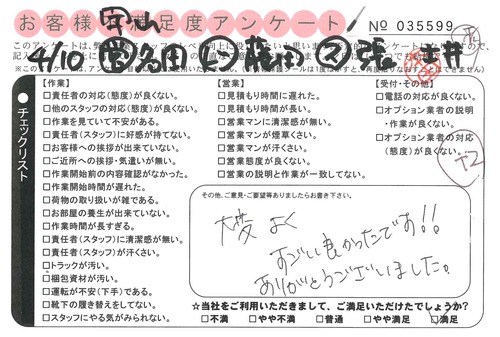 お客様満足度アンケート
№ 035599
4/10
チェックリスト
【作業】
□責任者の対応(態度)が良くない。
□他のスタッフの対応(態度)が良くない。
□作業を見ていて不安がある。
□責任者(スタッフ)に好感が持てない。
□お客様への挨拶が出来ていない。
□ご近所への挨拶・気遣いが無い。
□作業開始前の内容確認がなかった。
□作業開始時間が遅れた。
□荷物の取り扱いが雑である。
□お部屋の養生が出来ていない。
□作業時間が長すぎる。
□責任者(スタッフ)に清潔感が無い。
□責任者(スタッフ)が汗くさい。
□トラックが汚い。
□梱包資材が汚い。
□運転が不安(下手)である。
□靴下の履き替えをしてない。
□スタッフにやる気がみられない。
【営業】
□見積もり時間に遅れた。
□見積もり時間が長い。
□営業マンに清潔感が無い。
□営業マンが煙草くさい。
□営業マンが汗くさい。
□営業態度が良くない。
□営業の説明と作業が一致してない。
【受付・その他】
□電話の対応が良くない。
□オプション業者の説明
・作業が良くない。
□オプション業者の対応
(態度)が良くない。
その他、ご意見・ご要望等ありましたらお書き下さい。
大変よく
すごい良かったです!!
ありがとうございました。
☆当社をご利用いただきまして、ご満足いただけたでしょうか?
□不満 □やや不満 □普通 □やや満足 □満足